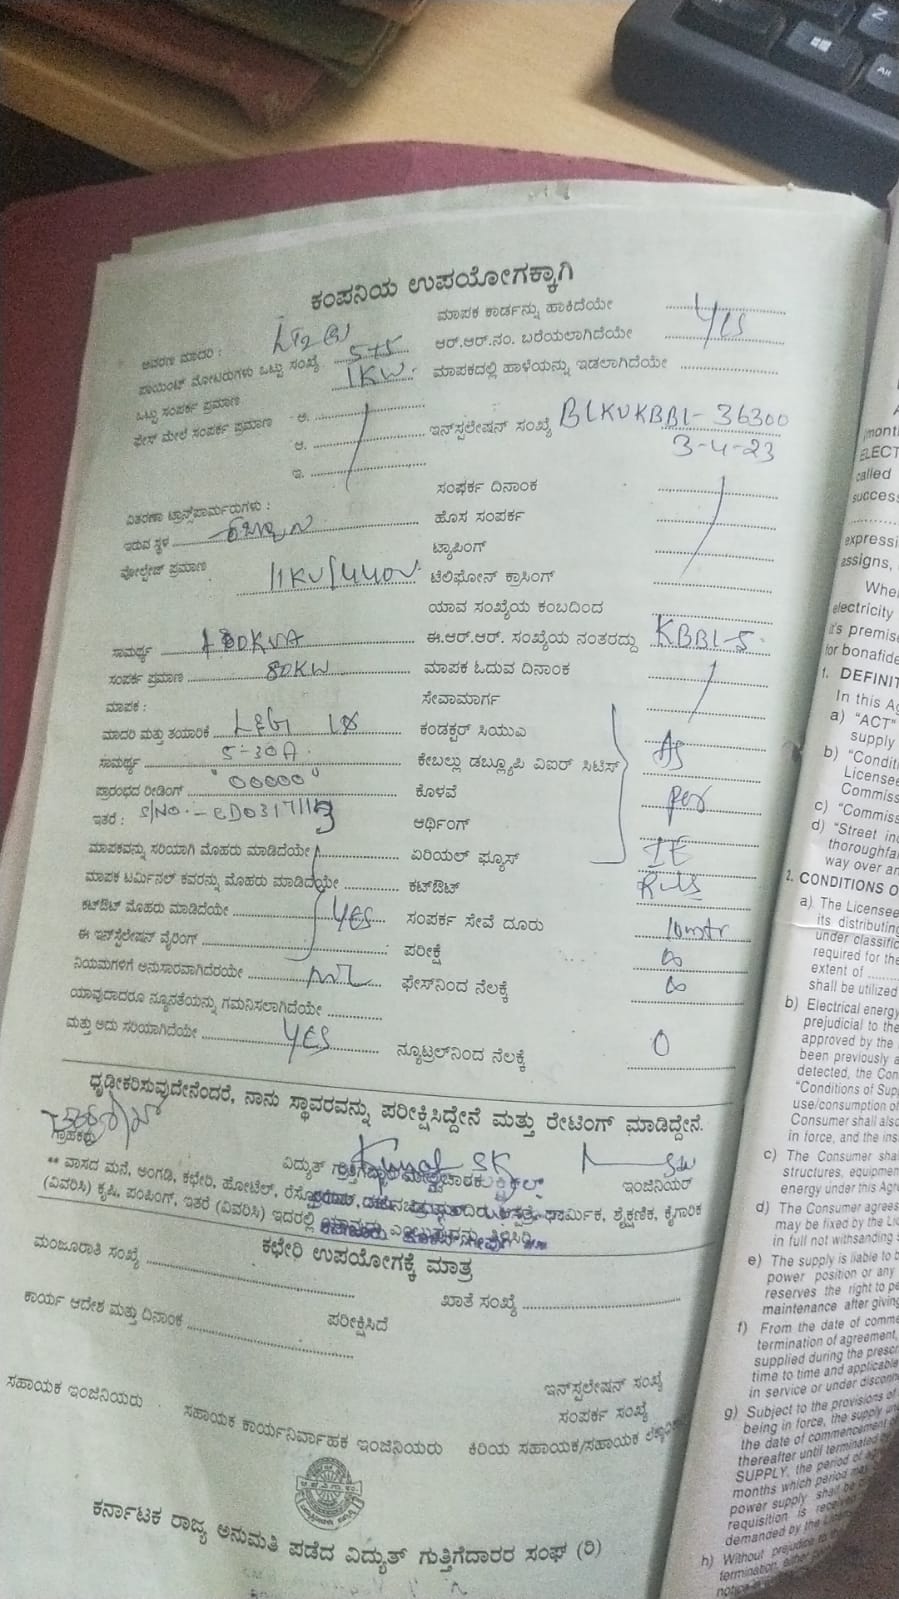 ಕಂಪನಿಯ ಉಪಯೋಗಕ್ಕಾಗಿ
ಆವರಣ ಮಾದರಿ : ಮಾಪಕ ಕಾರ್ಡನ್ನು ಹಾಕಿದೆಯೇ YES
ಪಾಯಿಂಟ್ ಮೋಟರುಗಳು ಒಟ್ಟು ಸಂಖ್ಯೆ 5+5 ಆರ್.ಆರ್.ನಂ. ಬರೆಯಲಾಗಿದೆಯೇ
ಒಟ್ಟು ಸಂಪರ್ಕ ಪ್ರಮಾಣ 1KW. ಮಾಪಕದಲ್ಲಿ ಹಾಳೆಯನ್ನು ಇಡಲಾಗಿದೆಯೇ
ಫೇಸ್ ಮೇಲೆ ಸಂಪರ್ಕ ಪ್ರಮಾಣ ಅ. ಇನ್‌ಸ್ಪಲೇಷನ್ ಸಂಖ್ಯೆ BLKUKBBL- 36300
ಆ. 3-4-23
ಇ. ಸಂಪರ್ಕ ದಿನಾಂಕ
ವಿತರಣಾ ಟ್ರಾನ್ಸ್‌ಪಾರ್ಮರುಗಳು : ಹೊಸ ಸಂಪರ್ಕ
ಇರುವ ಸ್ಥಳ ಟ್ಯಾಪಿಂಗ್
ವೋಲ್ಟೇಜ್ ಪ್ರಮಾಣ 11KV/440V ಟೆಲಿಫೋನ್ ಕ್ರಾಸಿಂಗ್
ಯಾವ ಸಂಖ್ಯೆಯ ಕಂಬದಿಂದ
ಸಾಮರ್ಥ್ಯ ಈ.ಆರ್.ಆರ್. ಸಂಖ್ಯೆಯ ನಂತರದ್ದು KBBL-5
ಸಂಪರ್ಕ ಪ್ರಮಾಣ 80KW ಮಾಪಕ ಓದುವ ದಿನಾಂಕ
ಮಾಪಕ : ಸೇವಾಮಾರ್ಗ
ಮಾದರಿ ಮತ್ತು ತಯಾರಿಕೆ L&G 1Ø ಕಂಡಕ್ಟರ್ ಸಿಯುಎ
ಸಾಮರ್ಥ್ಯ 5-30A. ಕೇಬಲ್ಲು ಡಬ್ಲ್ಯೂಪಿ ವಿಐರ್ ಸಿಟಿಸ್ As
ಪ್ರಾರಂಭದ ರೀಡಿಂಗ್ "00000" ಕೊಳವೆ per
ಇತರೆ : S/NO.- ಆರ್ಥಿಂಗ್
ಮಾಪಕವನ್ನು ಸರಿಯಾಗಿ ಮೊಹರು ಮಾಡಿದೆಯೇ ಏರಿಯಲ್ ಫ್ಯೂಸ್ IE
ಮಾಪಕ ಟರ್ಮಿನಲ್ ಕವರನ್ನು ಮೊಹರು ಮಾಡಿದೆಯೇ ಕಟ್‌ಔಟ್ Ruls
ಕಟ್‌ಔಟ್ ಮೊಹರು ಮಾಡಿದೆಯೇ YES ಸಂಪರ್ಕ ಸೇವೆ ದೂರು 10mtr
ಈ ಇನ್‌ಸ್ಟಲೇಷನ್ ವೈರಿಂಗ್ ಪರೀಕ್ಷೆ ∞
ನಿಯಮಗಳಿಗೆ ಅನುಸಾರವಾಗಿದೆರಯೇ ಫೇಸ್‌ನಿಂದ ನೆಲಕ್ಕೆ ∞
ಯಾವುದಾದರೂ ನ್ಯೂನತೆಯನ್ನು ಗಮನಿಸಲಾಗಿದೆಯೇ
ಮತ್ತು ಅದು ಸರಿಯಾಗಿದೆಯೇ YES ನ್ಯೂಟ್ರಲ್‌ನಿಂದ ನೆಲಕ್ಕೆ 0
ಧೃಢೀಕರಿಸುವುದೇನೆಂದರೆ, ನಾನು ಸ್ಥಾವರವನ್ನು ಪರೀಕ್ಷಿಸಿದ್ದೇನೆ ಮತ್ತು ರೇಟಿಂಗ್ ಮಾಡಿದ್ದೇನೆ.
ಗ್ರಾಹಕರು ವಿದ್ಯುತ್ ಇಂಜಿನಿಯರ್
** ವಾಸದ ಮನೆ, ಅಂಗಡಿ, ಕಛೇರಿ, ಹೋಟೆಲ್, ಧಾರ್ಮಿಕ, ಶೈಕ್ಷಣಿಕ, ಕೈಗಾರಿಕ
(ವಿವರಿಸಿ) ಕೃಷಿ, ಪಂಪಿಂಗ್, ಇತರೆ (ವಿವರಿಸಿ) ಇದರಲ್ಲಿ
ಕಛೇರಿ ಉಪಯೋಗಕ್ಕೆ ಮಾತ್ರ
ಮಂಜೂರಾತಿ ಸಂಖ್ಯೆ ಖಾತೆ ಸಂಖ್ಯೆ
ಕಾರ್ಯ ಆದೇಶ ಮತ್ತು ದಿನಾಂಕ ಪರೀಕ್ಷಿಸಿದೆ
ಇನ್‌ಸ್ಪಲೇಷನ್ ಸಂಖ್ಯೆ
ಸಂಪರ್ಕ ಸಂಖ್ಯೆ
ಸಹಾಯಕ ಇಂಜಿನಿಯರು ಸಹಾಯಕ ಕಾರ್ಯನಿರ್ವಾಹಕ ಇಂಜಿನಿಯರು ಕಿರಿಯ ಸಹಾಯಕ/ಸಹಾಯಕ
ಕರ್ನಾಟಕ ರಾಜ್ಯ ಅನುಮತಿ ಪಡೆದ ವಿದ್ಯುತ್ ಗುತ್ತಿಗೆದಾರರ ಸಂಘ (ರಿ)
ELECT
called
success
expressi
assigns,
electricity
it's premise
for bonafide
1. DEFINIT
In this Ag
a) "ACT"
supply
b) "Condit
License
Commiss
c) "Commiss
d) "Street inc
thoroughfa
way over an
2. CONDITIONS O
a) The Licensee
its distributing
under classific
required for the
extent of
shall be utilized
b) Electrical energy
prejudicial to the
approved by the
been previously a
detected, the Con
"Conditions of Sup
use/consumption of
Consumer shall also
in force, and the ins
c) The Consumer shal
structures, equipme
energy under this Agre
d) The Consumer agrees
may be fixed by the Li
in full not withsanding
e) The supply is liable to b
power position or any
reserves the right to pe
maintenance after giving
f) From the date of comme
termination of agreement,
supplied during the prescr
time to time and applicable
in service or under disconn
g) Subject to the provisions of
being in force, the supply
the date of commencement
thereafter until terminated
SUPPLY, the period of
months which period may
power supply shall be
requisition is received
demanded by the
h) Without prejudice to
termination,